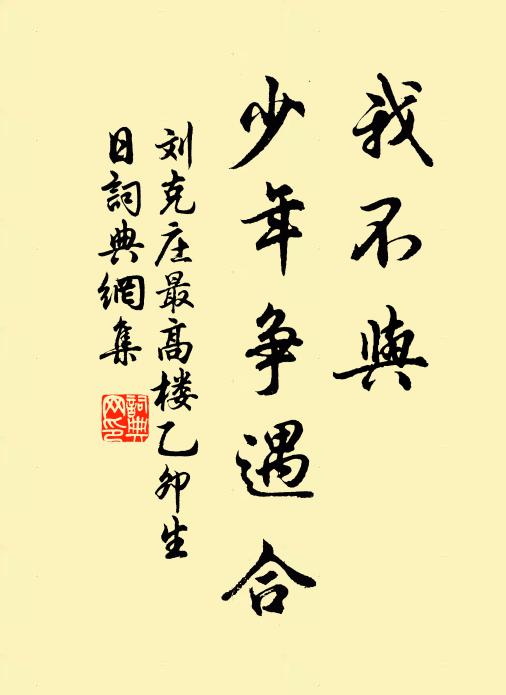 我不與
少年争遇合
刘克庄最高楼乙卯生
日詞典網集
詞典
网印